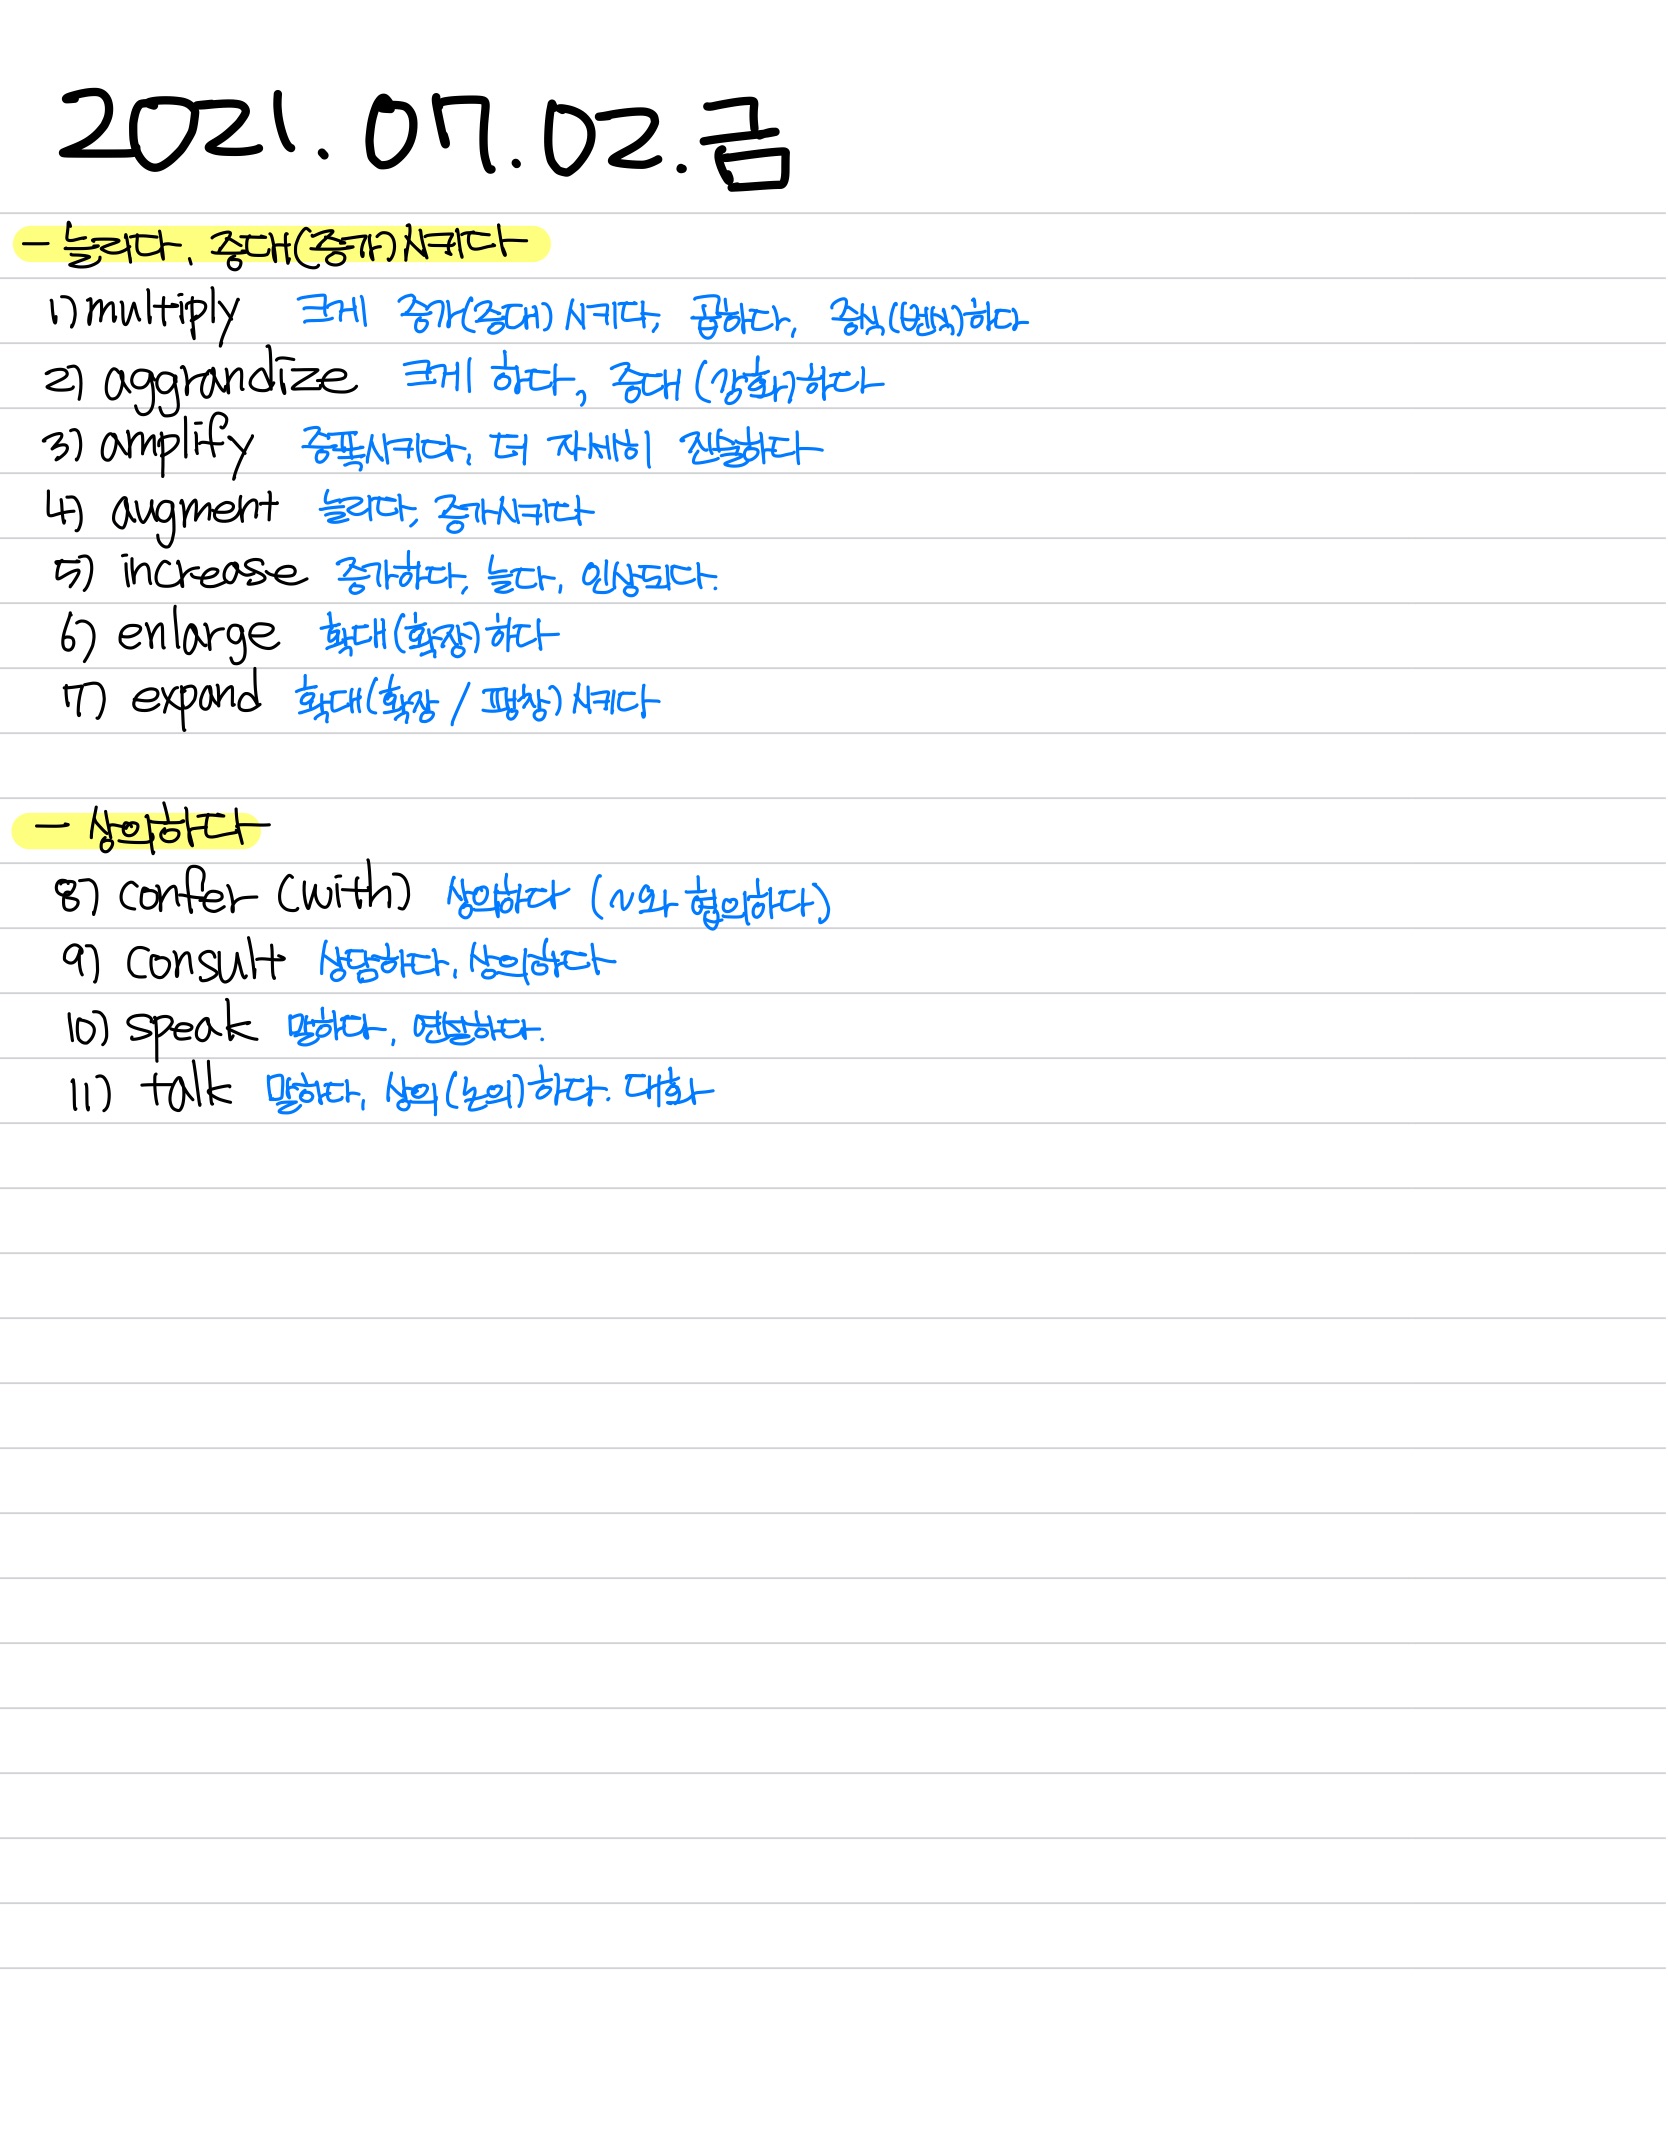 2021.07.02.금
- 늘리다, 증대(증가)시키다
1) multiply 크게 증가(증대)시키다, 곱하다, 증식(번식)하다
2) aggrandize 크게 하다, 증대(강화)하다
3) amplify 증폭시키다, 더 자세히 진술하다
4) augment 늘리다, 증가시키다
5) increase 증가하다, 늘다, 인상되다.
6) enlarge 확대(확장)하다
7) expand 확대(확장 / 팽창)시키다
- 상의하다
8) confer (with) 상의하다 (~와 협의하다)
9) consult 상담하다, 상의하다
10) speak 말하다, 연설하다.
11) talk 말하다, 상의(논의)하다. 대화